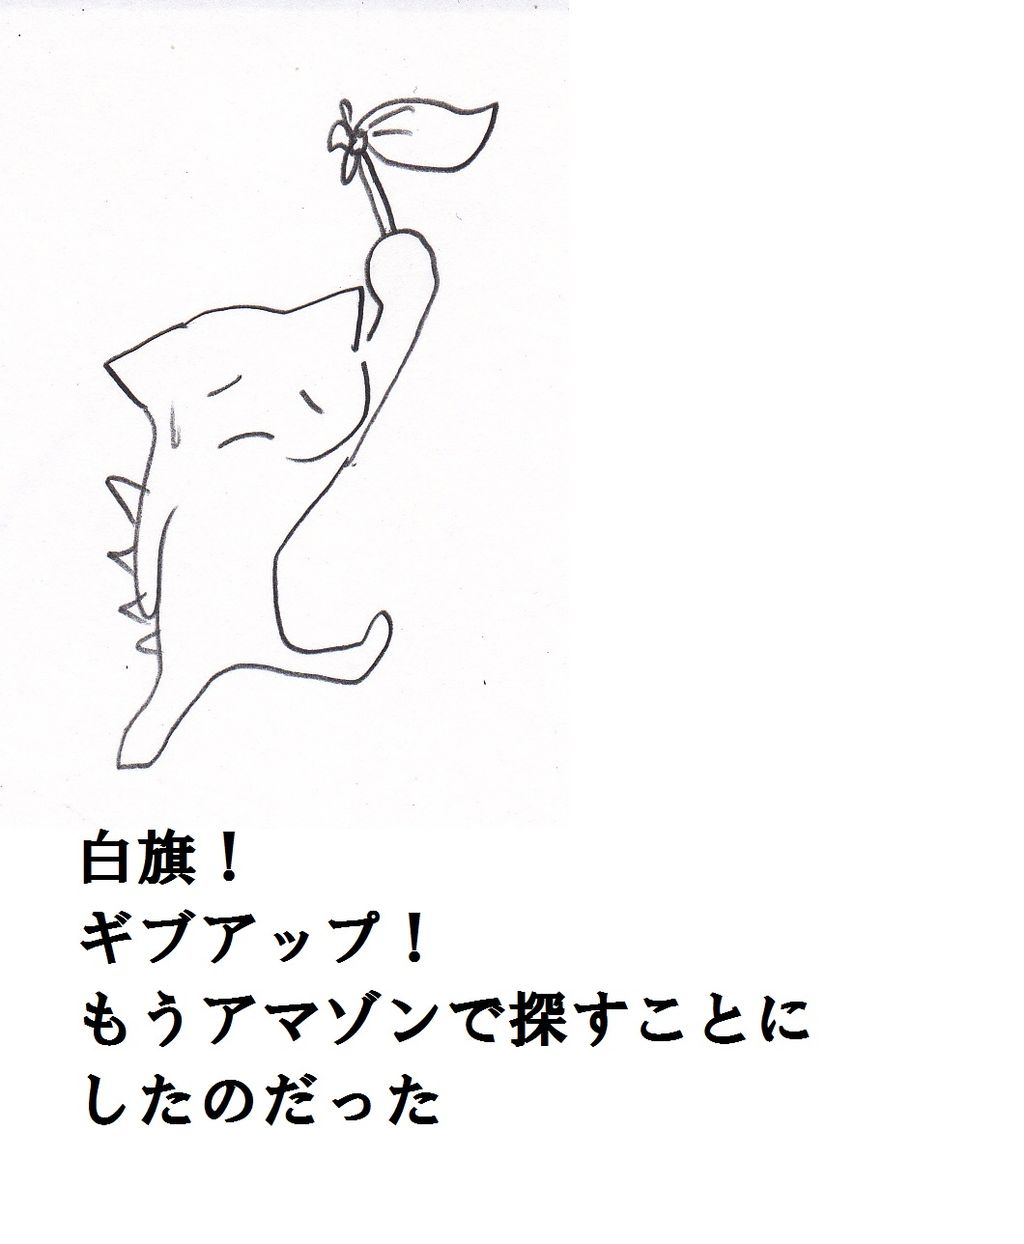 白旗！
ギブアップ！
もうアマゾンで探すことに
したのだった